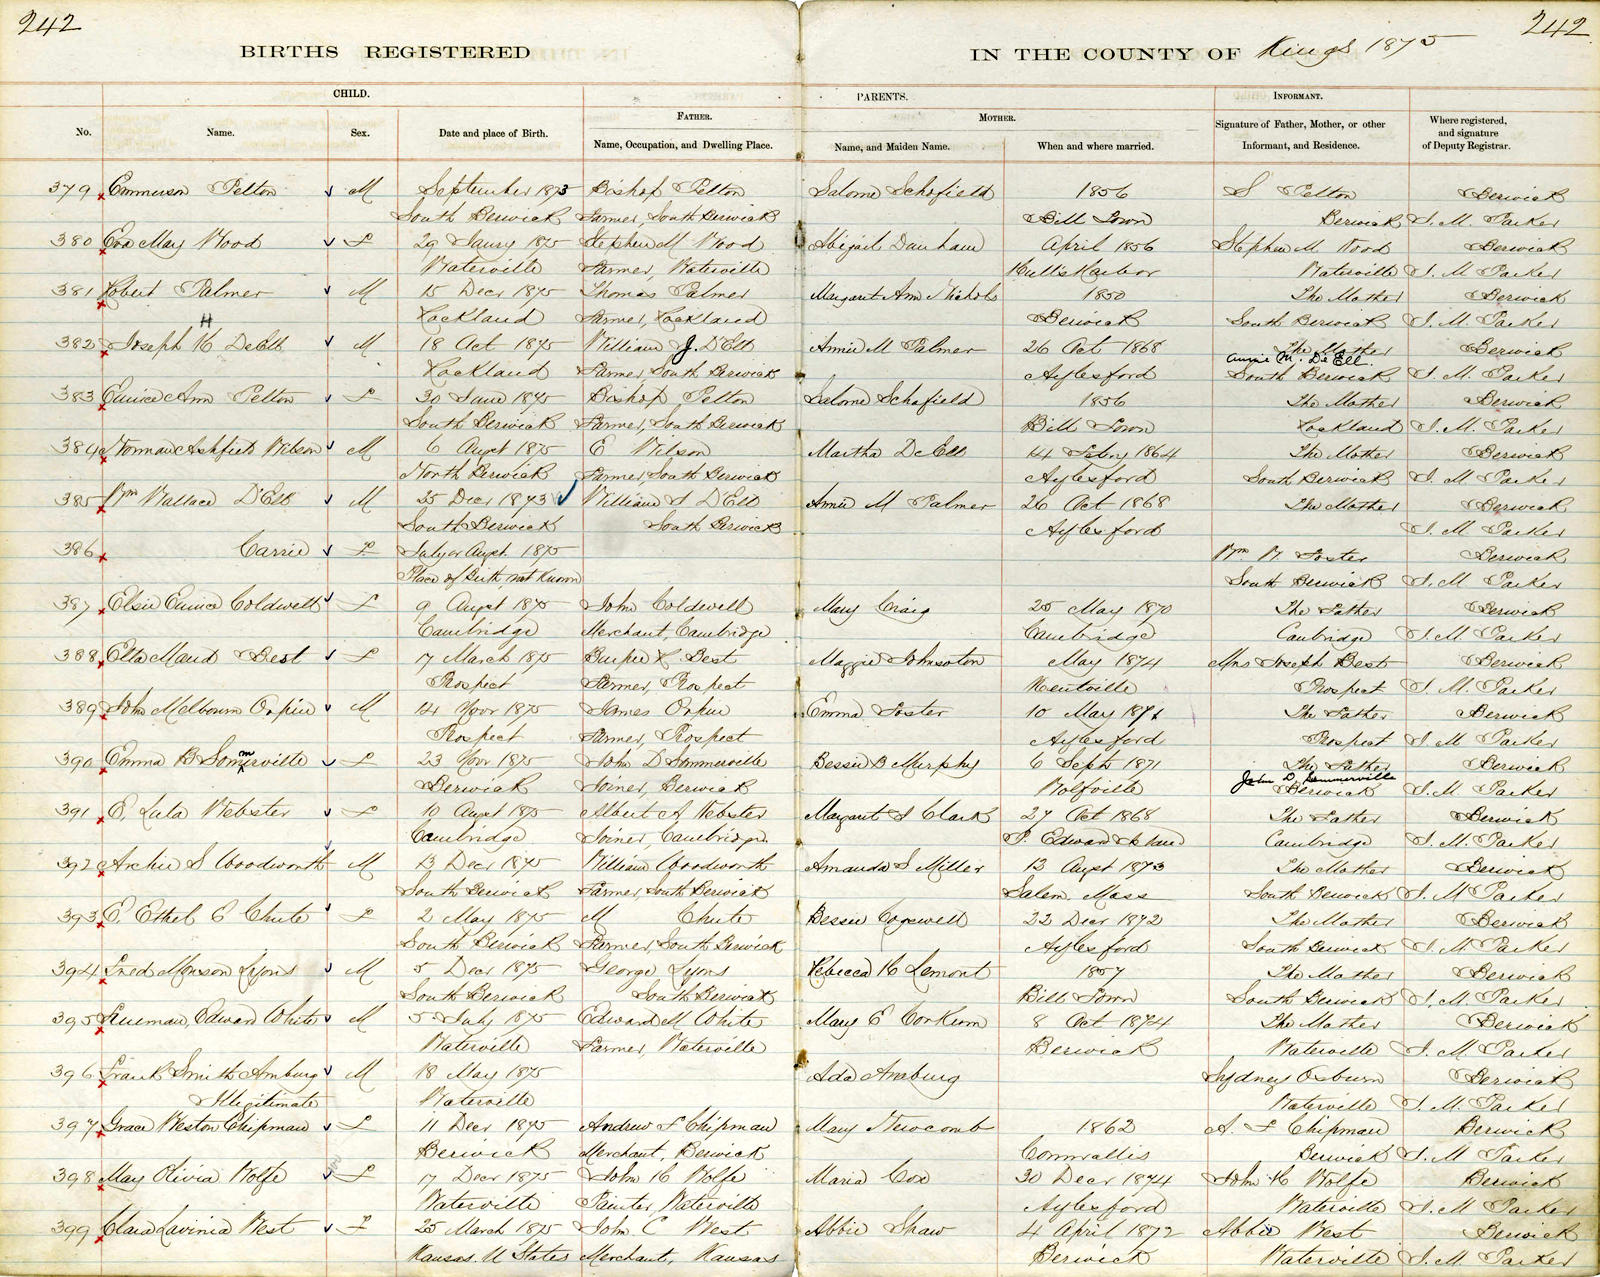 242
242
BIRTHS REGISTERED IN THE COUNTY OF Kings 1875
CHILD. PARENTS. INFORMANT.
No. Name. Sex. Date and place of Birth. FATHER. Name, Occupation, and Dwelling Place. MOTHER. Name, and Maiden Name. When and where married. Signature of Father, Mother, or other Informant, and Residence. Where registered, and signature of Deputy Registrar.
379 Emmerson Pelton M September 1873 Bishop Pelton Salome Schofield 1856 S Pelton Berwick
South Berwick Farmer, South Berwick Bill Town Berwick S. M. Parker
380 Eva May Wood F 29 Jany 1875 Stephen M Wood Abigail Dunham April 1856 Stephen M Wood Berwick
Waterville Farmer, Waterville Halls Harbor Waterville S. M Parker
381 Robert Palmer M 15 Decr 1875 Thomas Palmer Margaret Ann Nichols 1850 The Mother Berwick
Rockland Farmer, Rockland Berwick South Berwick S. M. Parker
H
382 Joseph H DeEll M 18 Oct 1875 William J. D'Ell Annie M Palmer 26 Oct 1868 The Mother Berwick
Annie M. De Ell
Rockland Farmer, South Berwick Aylesford South Berwick S. M. Parker
383 Eunice Ann Pelton F 30 June 1875 Bishop Pelton Salome Schofield 1856 The Mother Berwick
South Berwick Farmer, South Berwick Bill Town Rockland S. M. Parker
384 Norman Ashfield Wilson M 6 Augst 1875 E Wilson Martha DeEll 14 Febry 1864 The Mother Berwick
North Berwick Farmer, South Berwick Aylesford South Berwick S. M. Parker
385 Wm Wallace D'Ell M 25 Decr 1873 William J D'Ell Annie M Palmer 26 Oct 1868 The Mother Berwick
South Berwick South Berwick Aylesford S. M Parker
386 Carrie F July or Augst. 1875 Wm W. Foster Berwick
Place of Birth not Known South Berwick S. M Parker
387 Elsie Eunice Coldwell F 9 Augst 1875 John Coldwell Mary Craig 25 May 1870 The Father Berwick
Cambridge Merchant, Cambridge Cambridge Cambridge S. M. Parker
388 Etta Maud Best F 17 March 1875 Burpee Best Maggie Johnston May 1874 Mrs Joseph Best Berwick
Prospect Farmer, Prospect Kentville Prospect S. M. Parker
389 John Melbourn Orpin M 14 Novr 1875 James Orpin Emma Foster 10 May 1871 The Father Berwick
Prospect Farmer, Prospect Aylesford Prospect S. M Parker
m
390 Emma B Somerville F 23 Novr 1875 John D Sommerville Bessie B Murphy 6 Sept 1871 The Father Berwick
John D. Sommerville
Berwick Joiner, Berwick Wolfville Berwick S. M. Parker
391 E, Lula Webster F 10 Augst 1875 Albert A Webster Margaret J Clark 27 Oct 1868 The Father Berwick
Cambridge Joiner, Cambridge P. Edward Island Cambridge S. M. Parker
392 Archie S Woodworth M 13 Decr 1875 William Woodworth Amanda S Miller 13 Augst 1873 The Mother Berwick
South Berwick Farmer, South Berwick Salem, Mass South Berwick S. M. Parker
393 E Ethel E Chute F 2 May 1875 M Chute Bessie Cogswell 22 Decr 1872 The Mother Berwick
South Berwick Farmer, South Berwick Aylesford South Berwick S. M Parker
394 Fred Monson Lyons M 5 Decr 1875 George Lyons Rebecca H Lemont 1857 The Mother Berwick
South Berwick South Berwick Bill Town South Berwick S. M. Parker
395 Freeman, Edward White M 5 July 1875 Edward M White Mary E Corkum 8 Oct 1874 The Mother Berwick
Waterville Farmer, Waterville Berwick Waterville S. M Parker
396 Frank Smith Amburg M 18 May 1875 Ada Amburg Sydney Osburn Berwick
Illegitimate Waterville Waterville S. M. Parker
397 Grace Weston Chipman F 11 Decr 1875 Andrew F Chipman Mary Newcomb 1862 A. F Chipman Berwick
Berwick Merchant, Berwick Cornwallis Berwick S. M. Parker
398 May Olivia Wolfe F 17 Decr 1875 John H Wolfe Maria Cox 30 Decr 1874 John H Wolfe Berwick
Waterville Painter, Waterville Aylesford Waterville S. M. Parker
399 Clara Lavinia West F 25 March 1875 John C West Abbie Shaw 4 April 1872 Abbie West Berwick
Kansas. U States Merchant, Kansas Berwick Waterville S. M. Parker